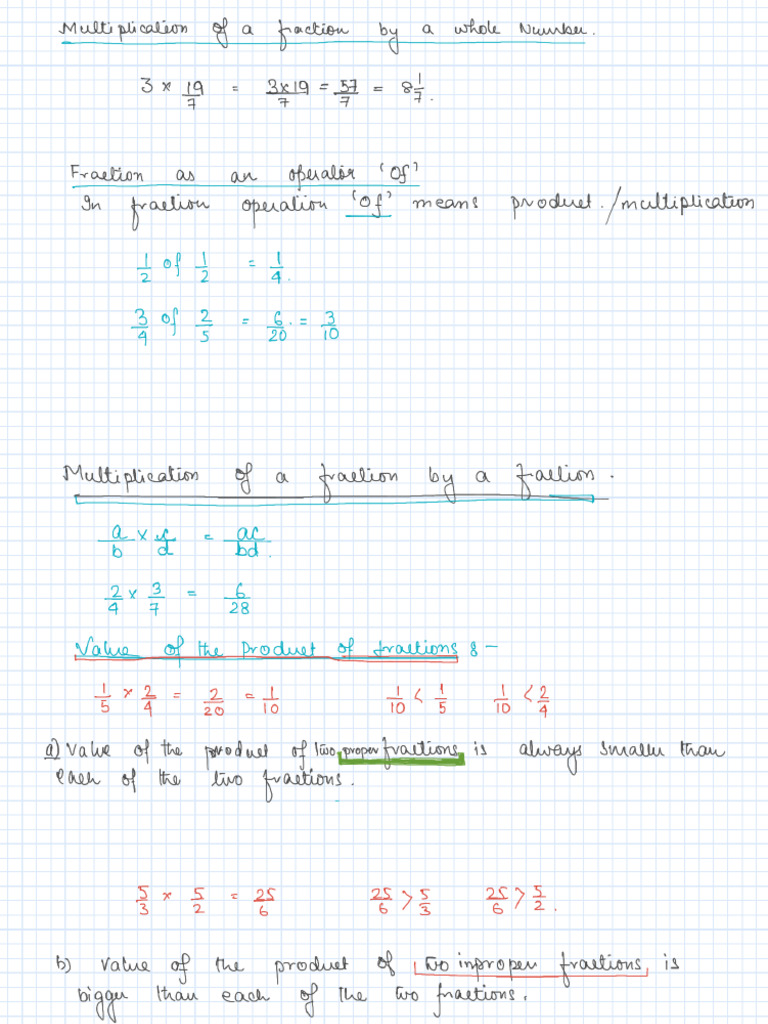 Multiplication of a fraction by a whole Number.
3 × 19/7 = 3×19/7 = 57/7 = 8 1/7.
Fraction as an operator 'Of'
In fraction operation 'Of' means product./multiplication
1/2 of 1/2 = 1/4.
3/4 of 2/5 = 6/20. = 3/10
Multiplication of a fraction by a fraction.
a/b × c/d = ac/bd.
2/4 × 3/7 = 6/28
Value of the Product of fractions :-
1/5 × 2/4 = 2/20 = 1/10 1/10 < 1/5 1/10 < 2/4
a) Value of the product of two proper fractions is always smaller than
each of the two fractions.
5/3 × 5/2 = 25/6 25/6 > 5/3 25/6 > 5/2.
b) Value of the product of two inproper fractions is
bigger than each of the two fractions.